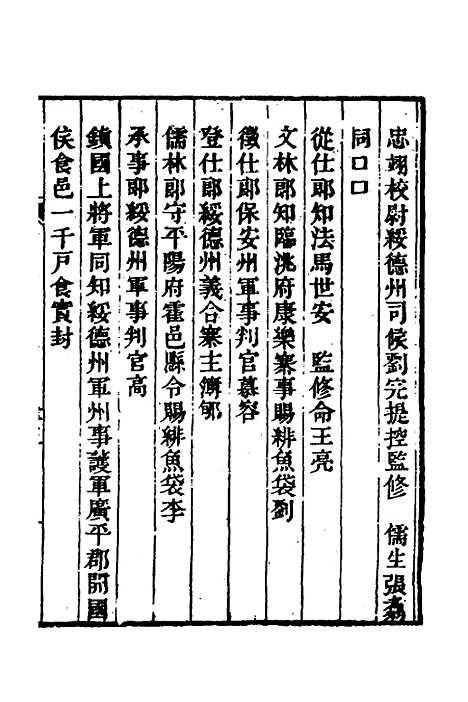 忠翊校尉綏德州司侯劉完提控監修　儒生張
同口口
從仕郎知法馬世安　監修命王亮
文林郎知臨洮府康樂寨事賜緋魚袋劉
徵仕郎保安州軍事判官慕容
登仕郎綏德州義合寨主簿郇
儒林郎守平陽府霍邑縣令賜緋魚袋李
承事郎綏德州軍事判官高
鎮國上將軍同知綏德州軍州事護軍廣平郡開國
侯食邑一千戸食實封